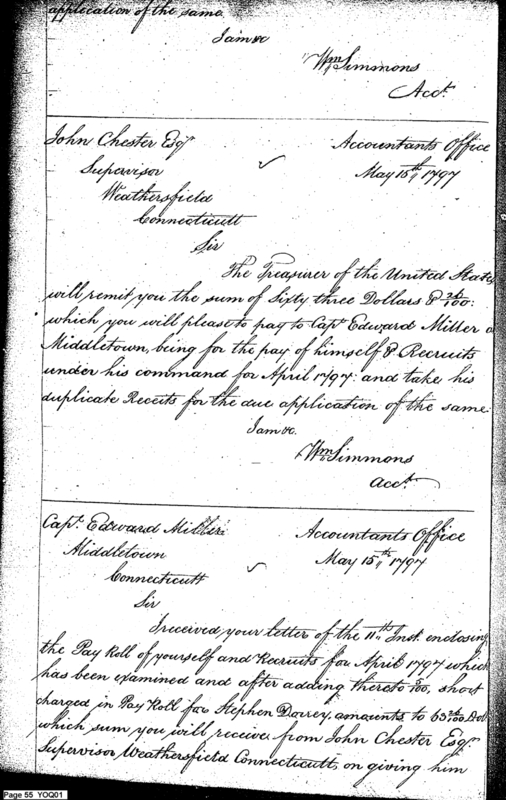 application of the same.
I am &c
Wm Simmons
Acct.
John Chester Esqr
Accountants Office
Supervisor
May 15th 1797
Weathersfield
Connecticutt
Sir
The Treasurer of the United States
will remit you the sum of Sixty three Dollars &
which you will please to pay to Capt Edward Miller
Middletown, being for the pay of himself & Recruits
under his command for April 1797: and take his
duplicate Receits for the due application of the same.
I am &c.
Wm Simmons
Acct.
Capt. Edward Miller
Accountants Office
Middletown
May 15th 1797
Connecticutt
Sir
I received your letter of the 11th Inst. enclosing
the Pay Roll of yourself and Recruits for April 1797 which
has been examined and after adding thereto /100, short
charged in Pay Roll for Stephen amounts to 63 /100 Dol
which sum you will receive from John Chester Esqr.
Supervisor Weathersfield Connecticutt, on giving him
Page 55 YOQ01